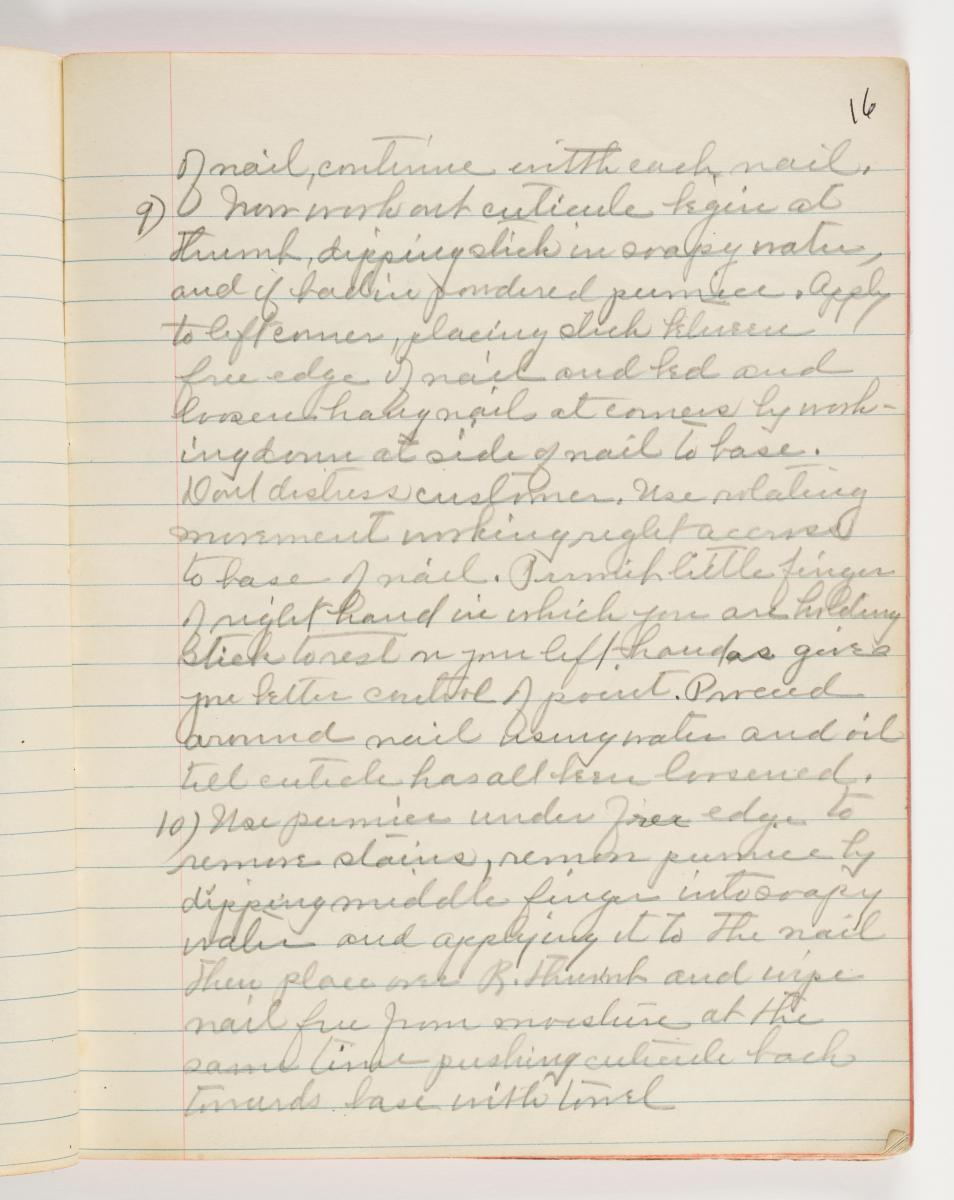 16
of nail, continue with each nail.
9) Now work out cuticule begin at
thumb, dipping stick in soapy water,
and if bad in powdered pumice. Apply
to left corner, placing stick between
free edge of nail and bed and
loosen hang nails at corners by work-
ing down at side of nail to base.
Don't distress customer. Use rotating
movement working right accross
to base of nail. Permit little finger
of right hand in which you are holding
stick to rest on your left hand as gives
you better control of point. Proceed
around nail using water and oil
till cuticle has all been loosened.
10) Use pumice under free edge to
remove stains, remove pumice by
dipping middle finger into soapy
water and applying it to the nail
then place over R. thumb and wipe
nail free from moisture at the
same time pushing cuticule back
towards base with towel